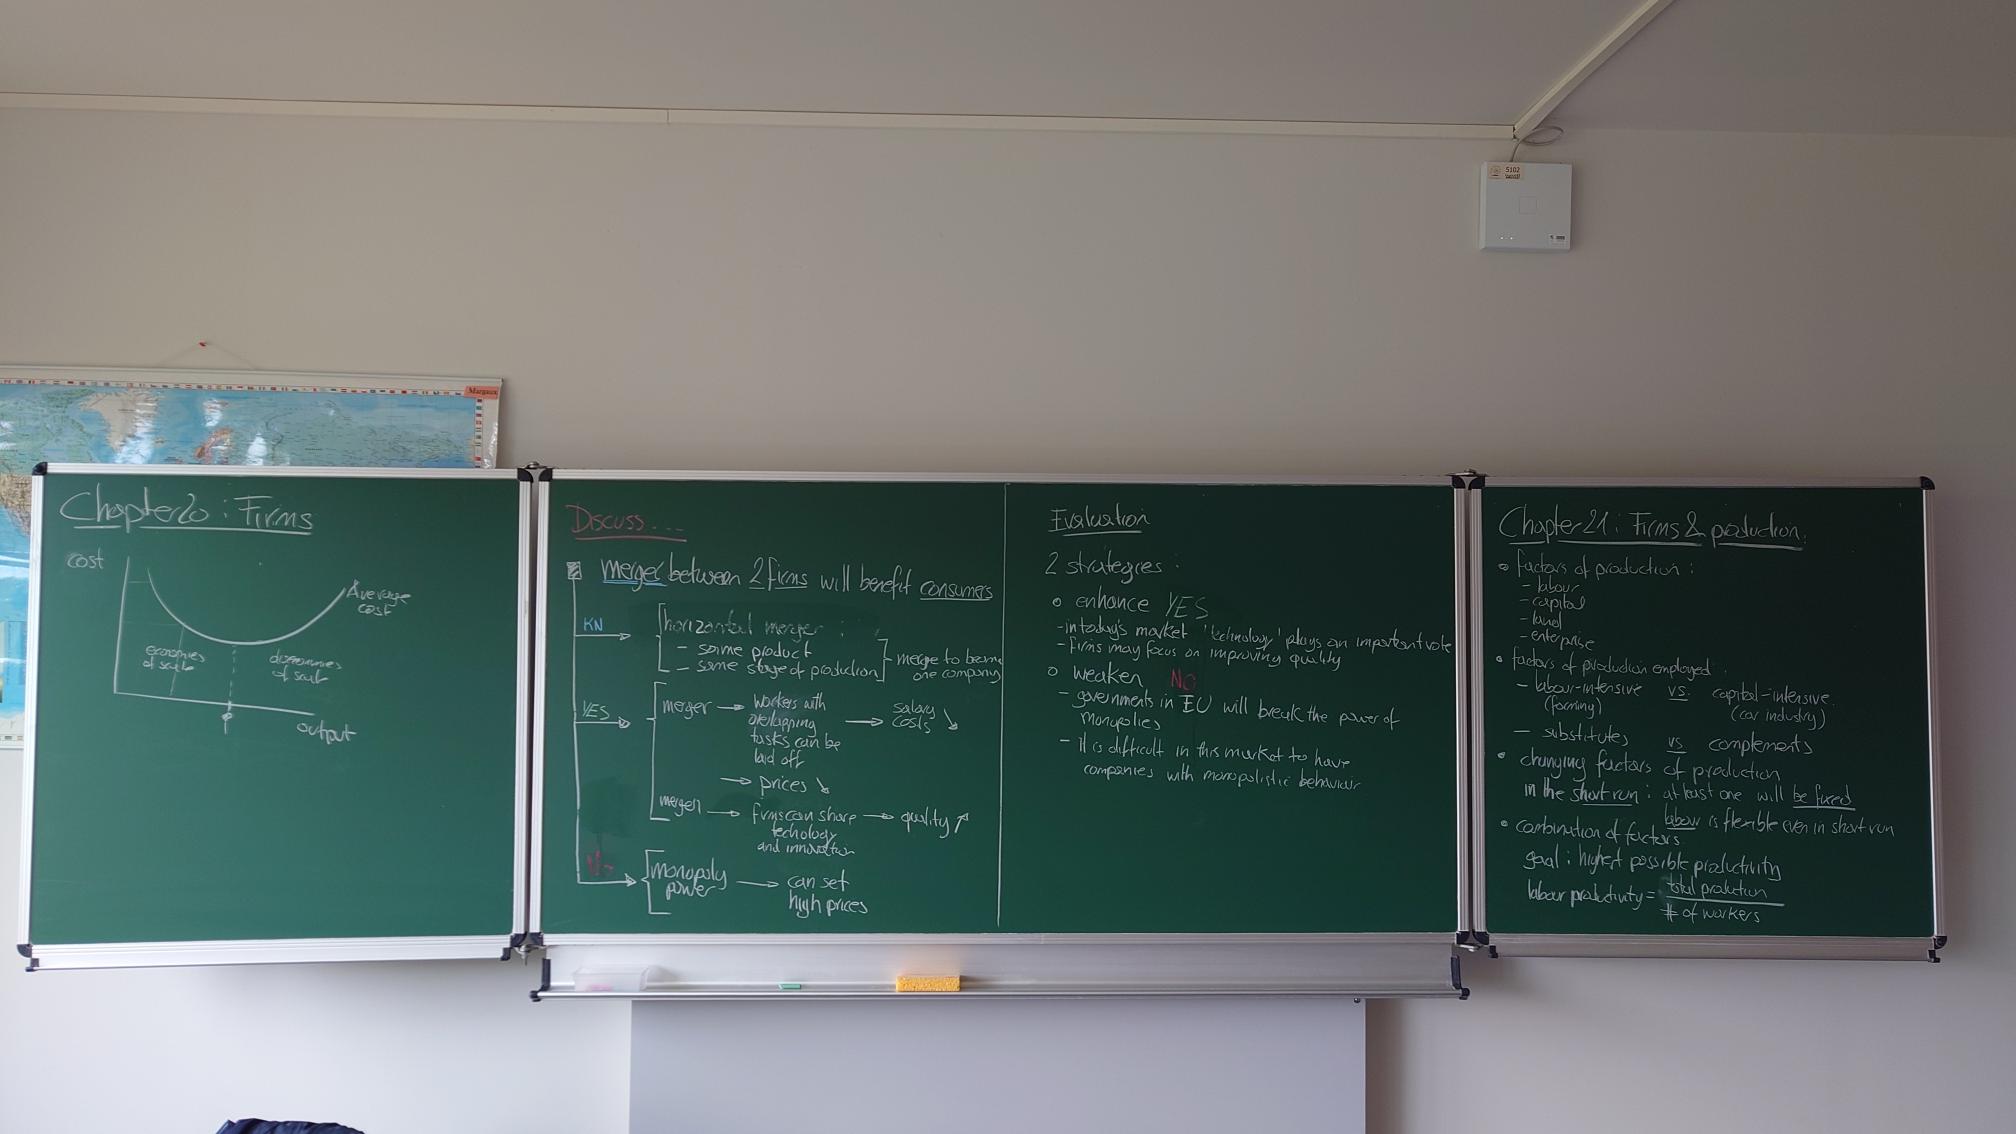 Margaux
5102
Chapter 20 : Firms
cost
Average
cost
economies
of scale
diseconomies
of scale
output
Discuss...
merger between 2 firms will benefit consumers
KN
horizontal merger :
- same product
- same stage of production
merge to become
one company
YES
merger → workers with
overlapping
tasks can be
laid off
→ salary
costs ↘
→ prices ↘
merger → firms can share
techology
and innovation
→ quality ↗
No
monopoly
power
→ can set
high prices
Evaluation
2 strategies :
o enhance YES
- in today's market 'technology' plays an important role
- firms may focus on improving quality
o weaken NO
- governments in EU will break the power of
monopolies
- It is difficult in this market to have
companies with monopolistic behaviour
Chapter 21 : Firms & production.
• factors of production :
- labour
- capital
- land
- enterprise
• factors of production employed :
- labour-intensive vs. capital-intensive
(farming) (car industry)
- substitutes vs complements
• changing factors of production
in the short run : at least one will be fixed
labour is flexible even in short run
• combination of factors
goal : highest possible productivity
labour productivity = total production
# of workers